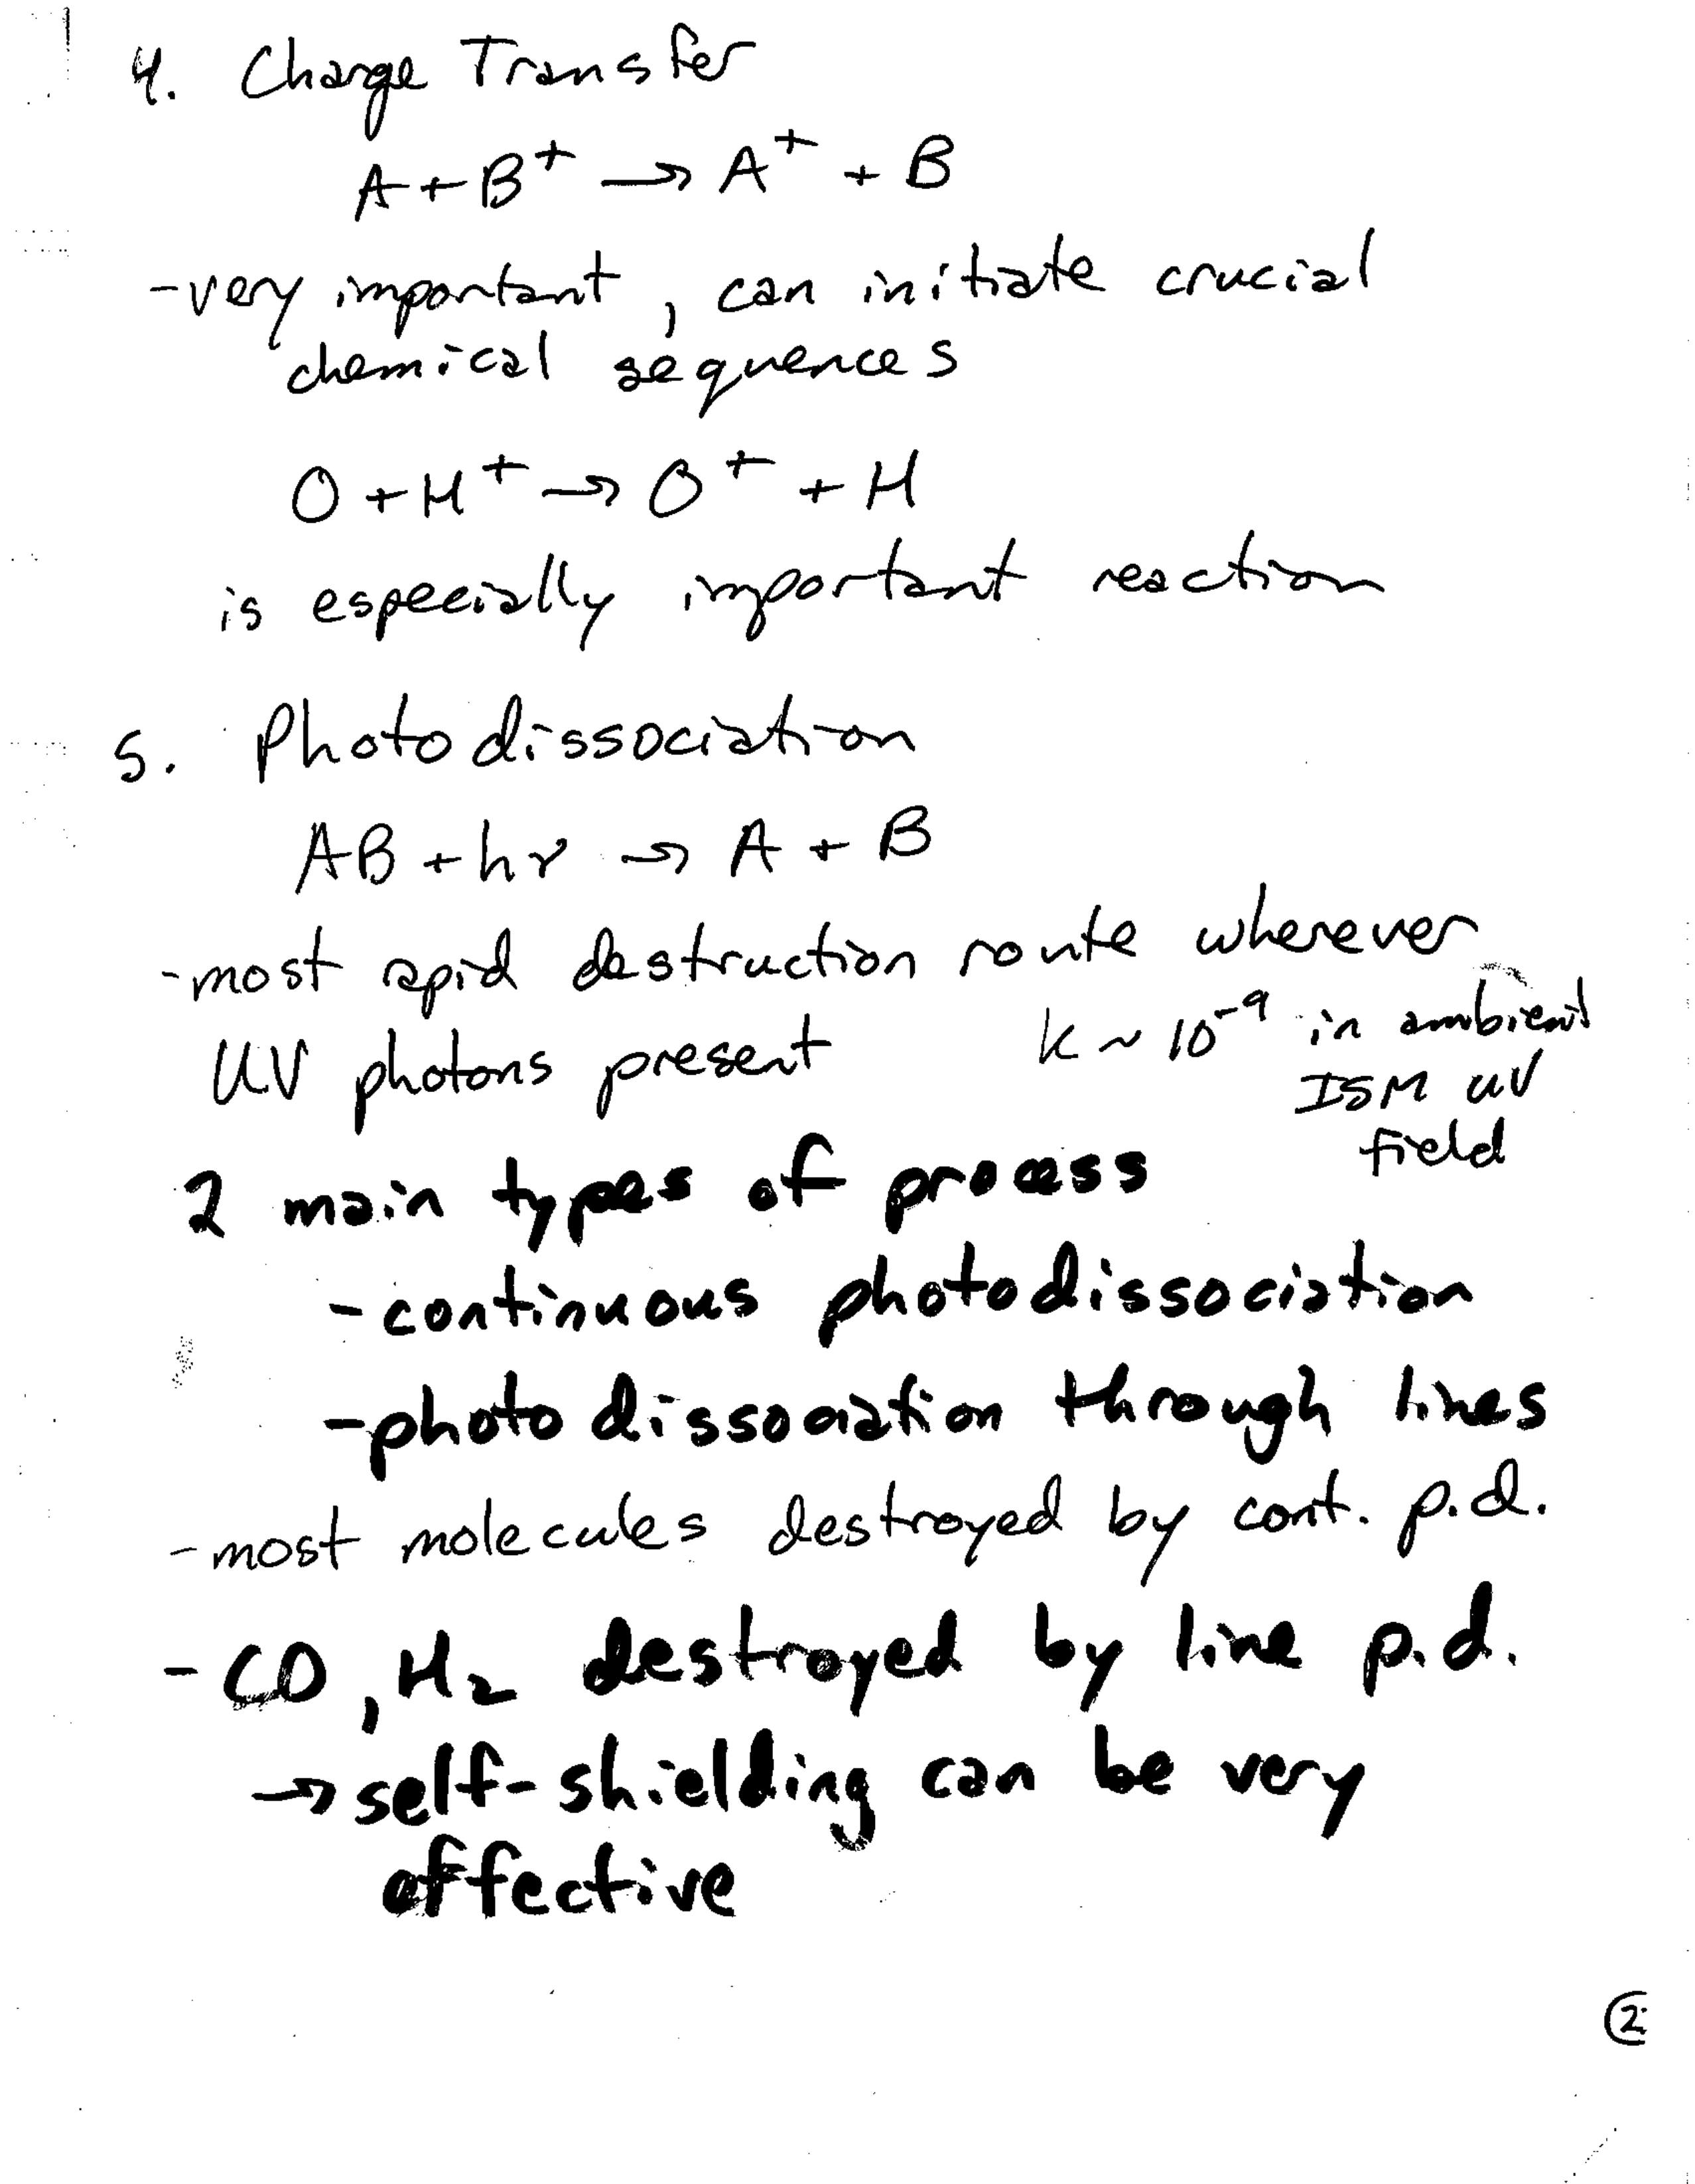 4. Charge Transfer
A + B⁺ → A⁺ + B
- very important, can initiate crucial
chemical sequences
O + H⁺ → O⁺ + H
is especially important reaction
5. Photodissociation
AB + hν → A + B
- most rapid destruction route wherever
UV photons present
k ~ 10⁻⁹ in ambient
ISM UV
field
2 main types of process
- continuous photodissociation
- photodissociation through lines
- most molecules destroyed by cont. p.d.
- CO, H₂ destroyed by line p.d.
→ self-shielding can be very
effective
2